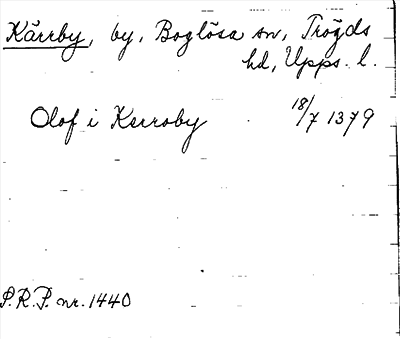 Kärrby, by, Boglösa sn, Trögds
hd, Upps. l.
Olof i Kerroby 18/7 1379
S.R.P. nr. 1440